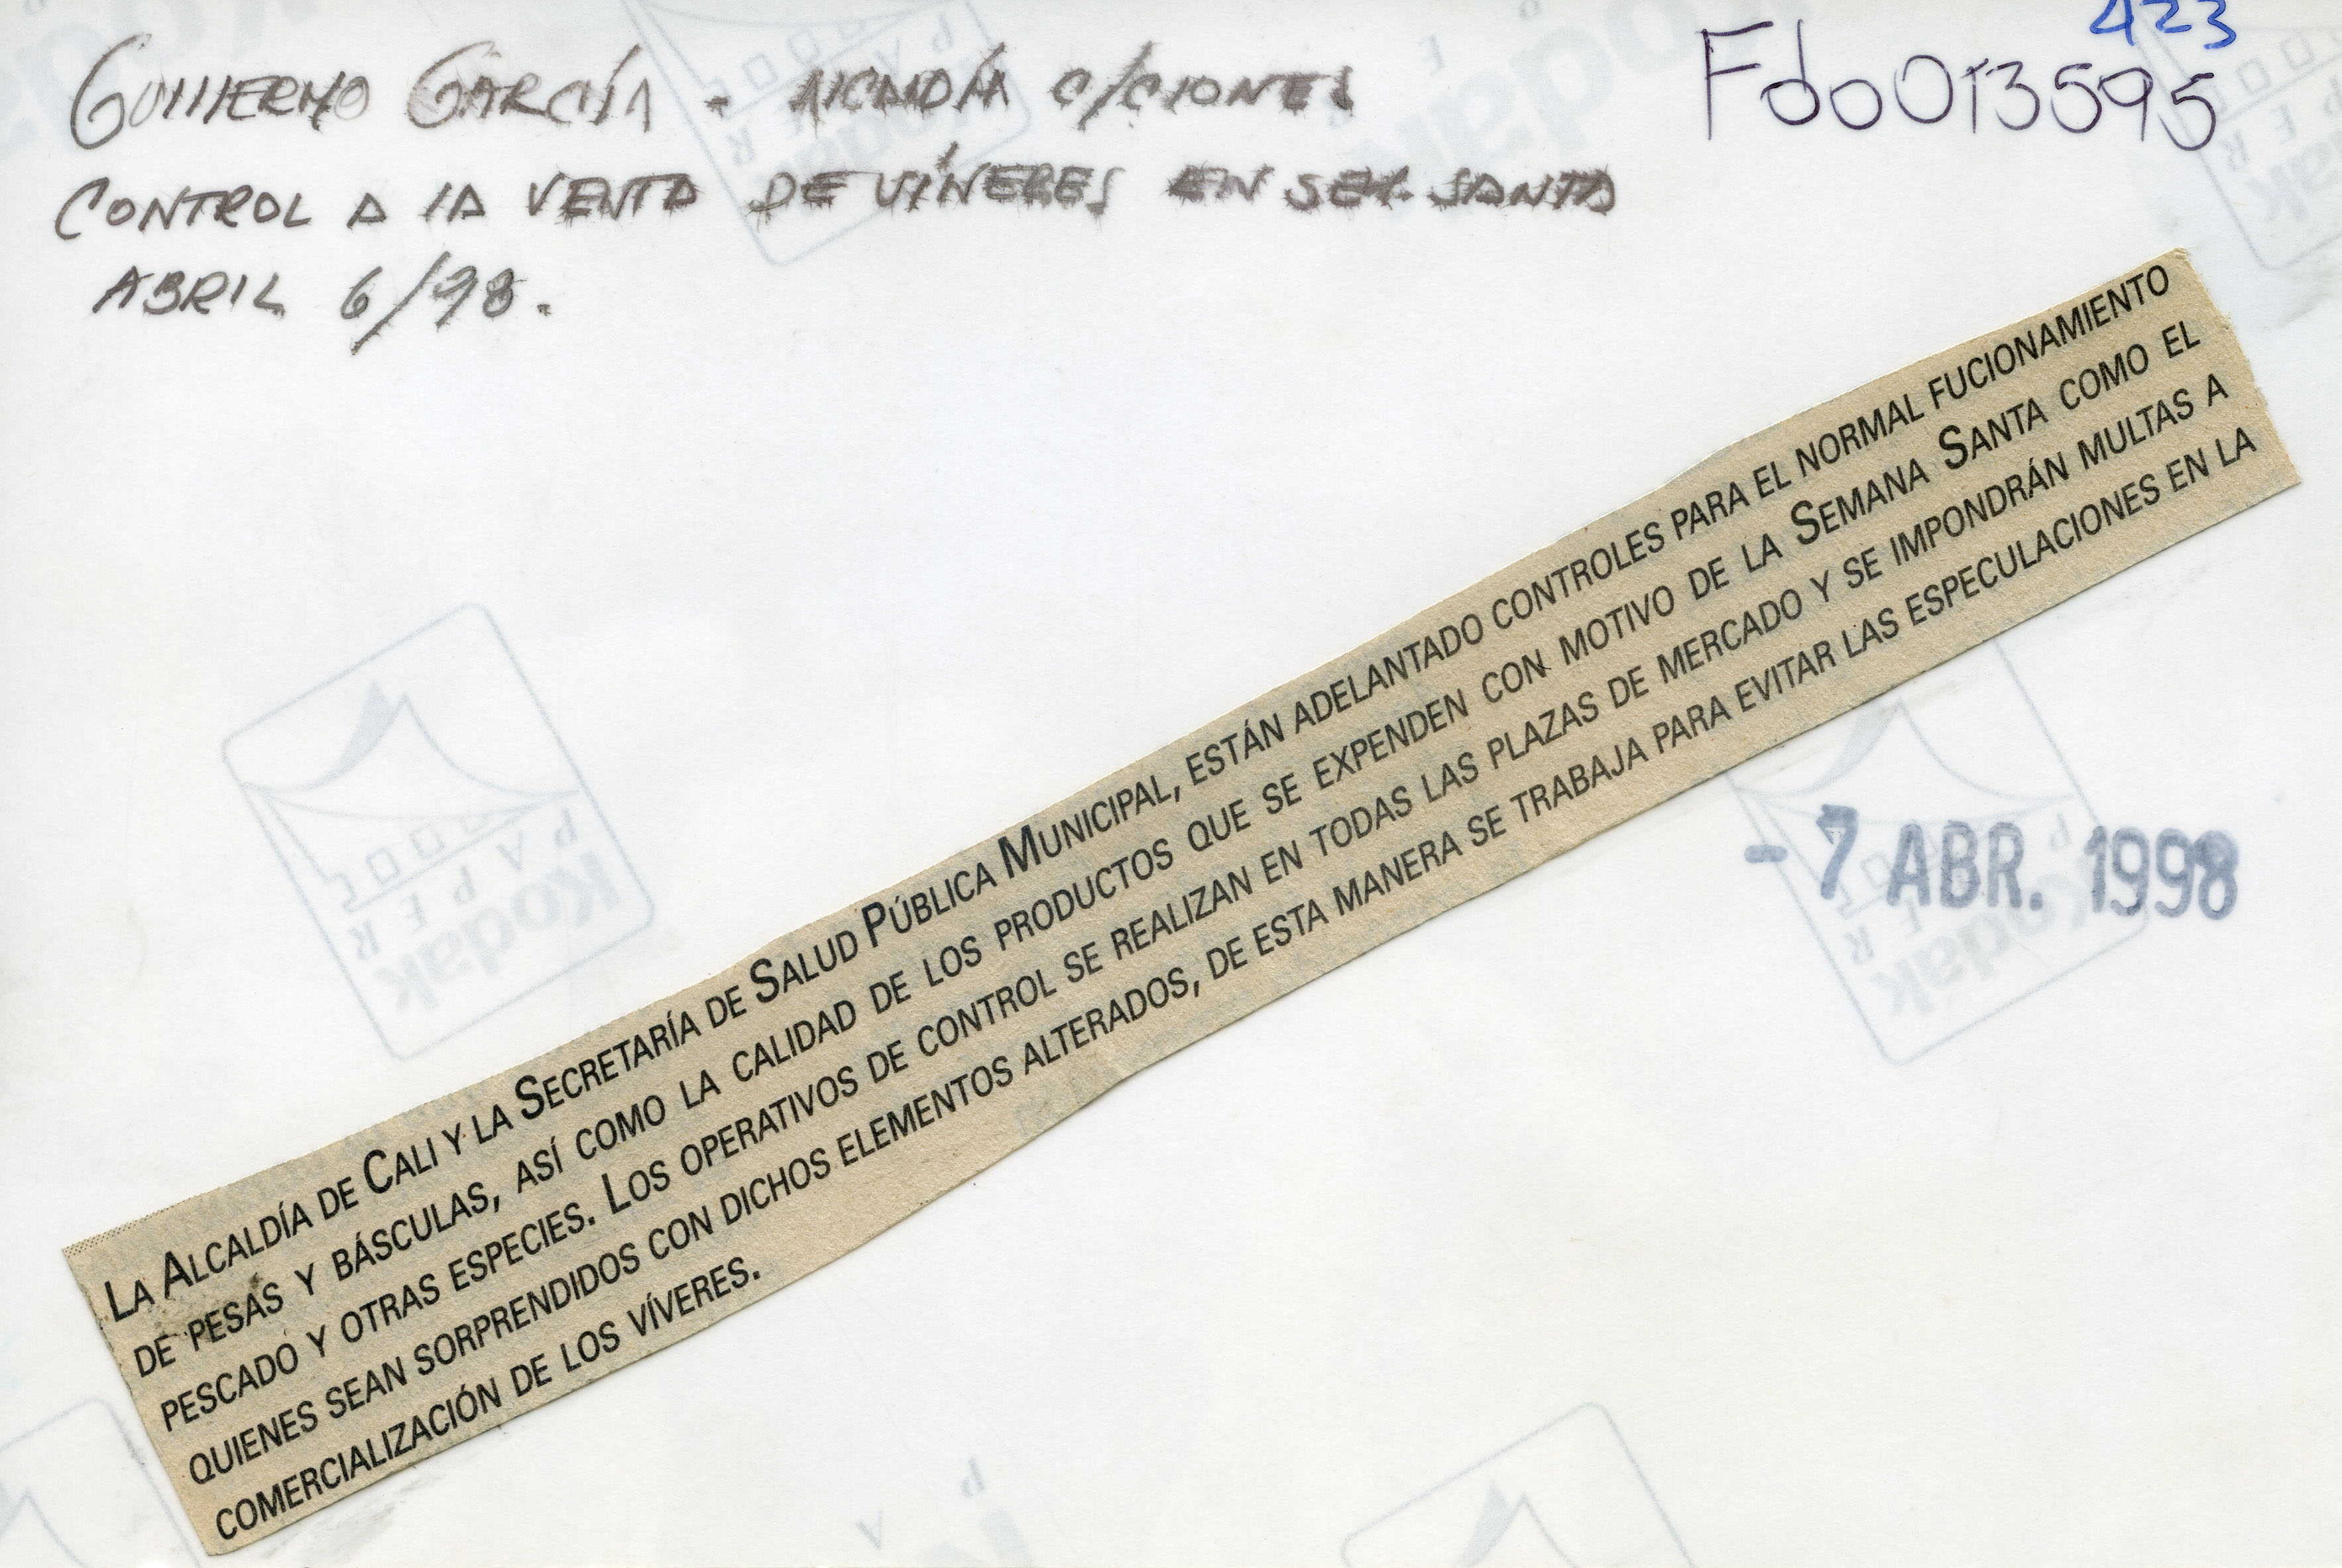 423
Fdo013595
GUILLERMO GARCÍA - ALCALDÍA C/CIONES
CONTROL A LA VENTA DE VÍVERES EN SEM. SANTA
ABRIL 6/98.
LA ALCALDÍA DE CALI Y LA SECRETARÍA DE SALUD PÚBLICA MUNICIPAL, ESTÁN ADELANTADO CONTROLES PARA EL NORMAL FUCIONAMIENTO
DE PESAS Y BÁSCULAS, ASÍ COMO LA CALIDAD DE LOS PRODUCTOS QUE SE EXPENDEN CON MOTIVO DE LA SEMANA SANTA COMO EL
PESCADO Y OTRAS ESPECIES. LOS OPERATIVOS DE CONTROL SE REALIZAN EN TODAS LAS PLAZAS DE MERCADO Y SE IMPONDRÁN MULTAS A
QUIENES SEAN SORPRENDIDOS CON DICHOS ELEMENTOS ALTERADOS, DE ESTA MANERA SE TRABAJA PARA EVITAR LAS ESPECULACIONES EN LA
COMERCIALIZACIÓN DE LOS VÍVERES.
-7 ABR. 1998
Kodak
PAPER
Kodak